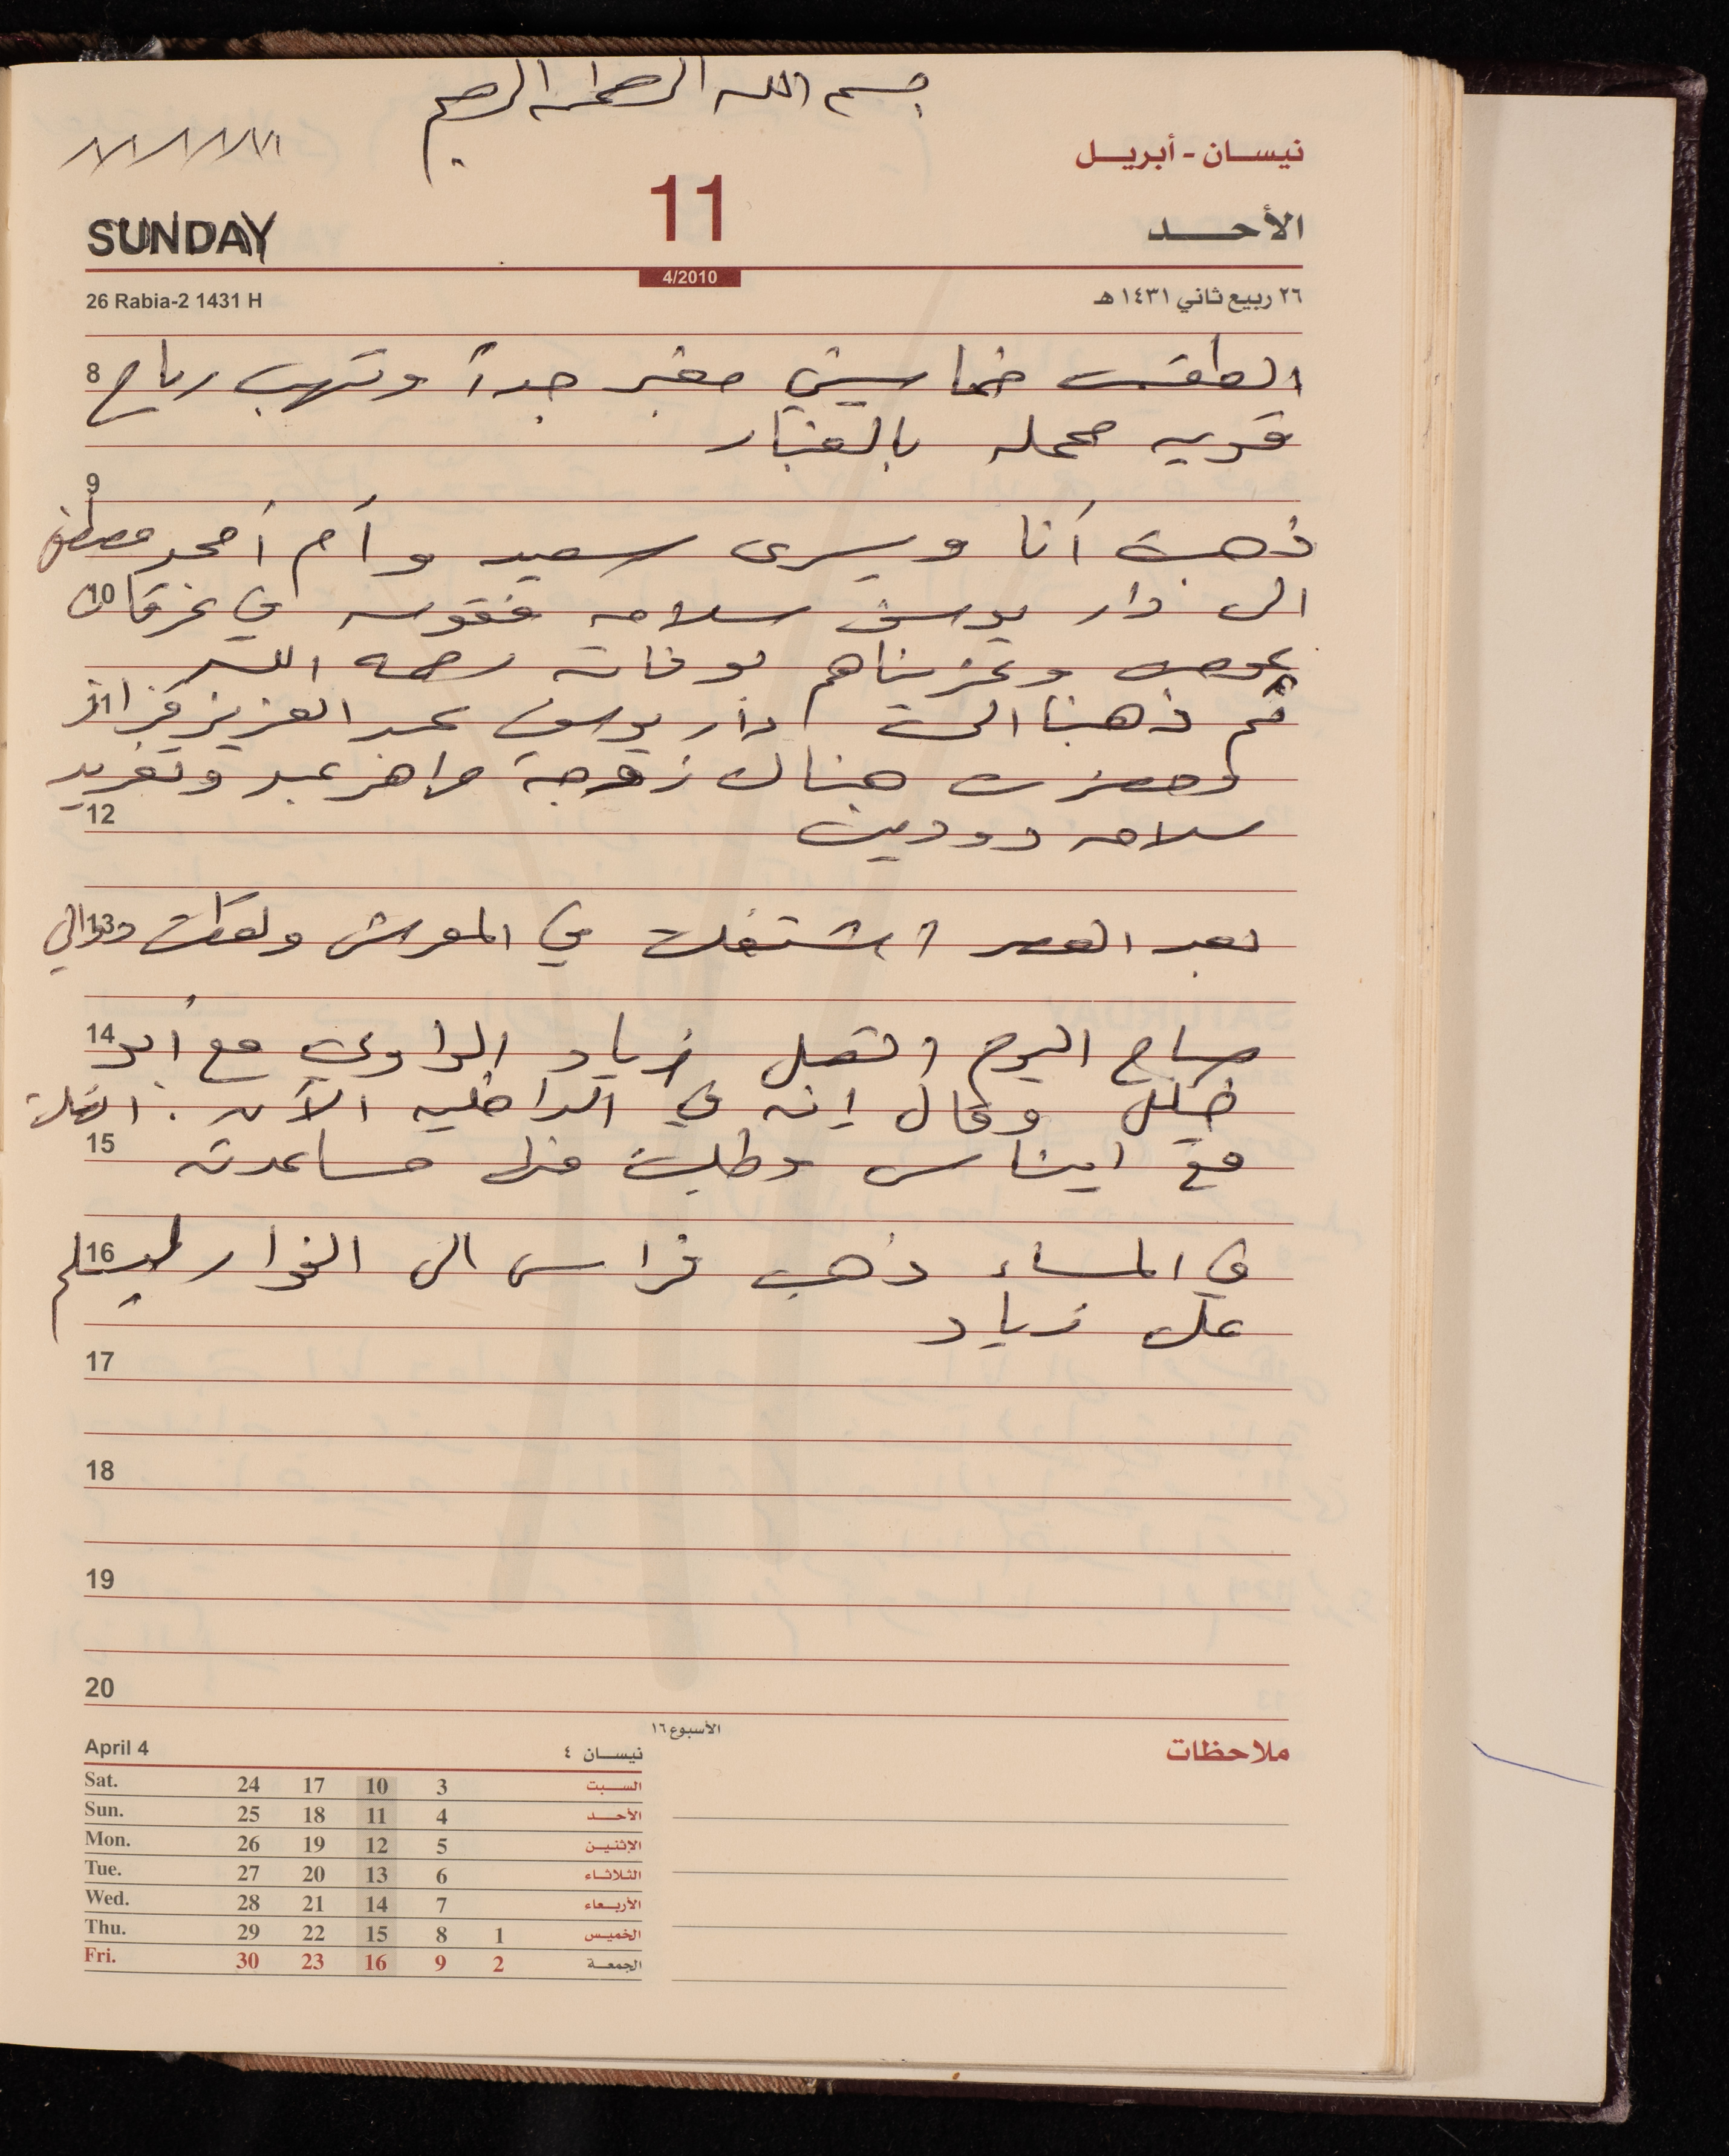 بسم الله الرحمن الرحيم
نيسان - أبريل
11
SUNDAY
الأحد
4/2010
26 Rabia-2 1431 H
٢٦ ربيع ثاني ١٤٣١ هـ
8
الطقس خماسيني مغبر جداً وتهب رياح
قويه محمله بالغبار
9
ذهبت أنا ويسرى سعيد وأم أمجد مصطفى
10
الى دار يوسف سلامه فقوسه في
وعزيناهم بوفاته رحمه الله
11
ثم ذهبنا الى دار يوسف عبد العزيز فزاز
وحضرت هناك زوجة ماهر عبد وتغريد
12
سلامه دودين
13
بعد العصر اشتغلت في المعرش دوالي
14
صباح اليوم اتصل زياد الراوي مع أبو
خليل وقال إنه في الداخليه الآن. اتصلت
15
مع ايناس وطلبت منها مساعدته
16
في المساء ذهب فراس الى الفوار ليسلم
على زياد
17
18
19
20
الأسبوع ١٦
ملاحظات
April 4 نيسان ٤
Sat. 24 17 10 3 السبت
Sun. 25 18 11 4 الأحد
Mon. 26 19 12 5 الإثنين
Tue. 27 20 13 6 الثلاثاء
Wed. 28 21 14 7 الأربعاء
Thu. 29 22 15 8 1 الخميس
Fri. 30 23 16 9 2 الجمعة